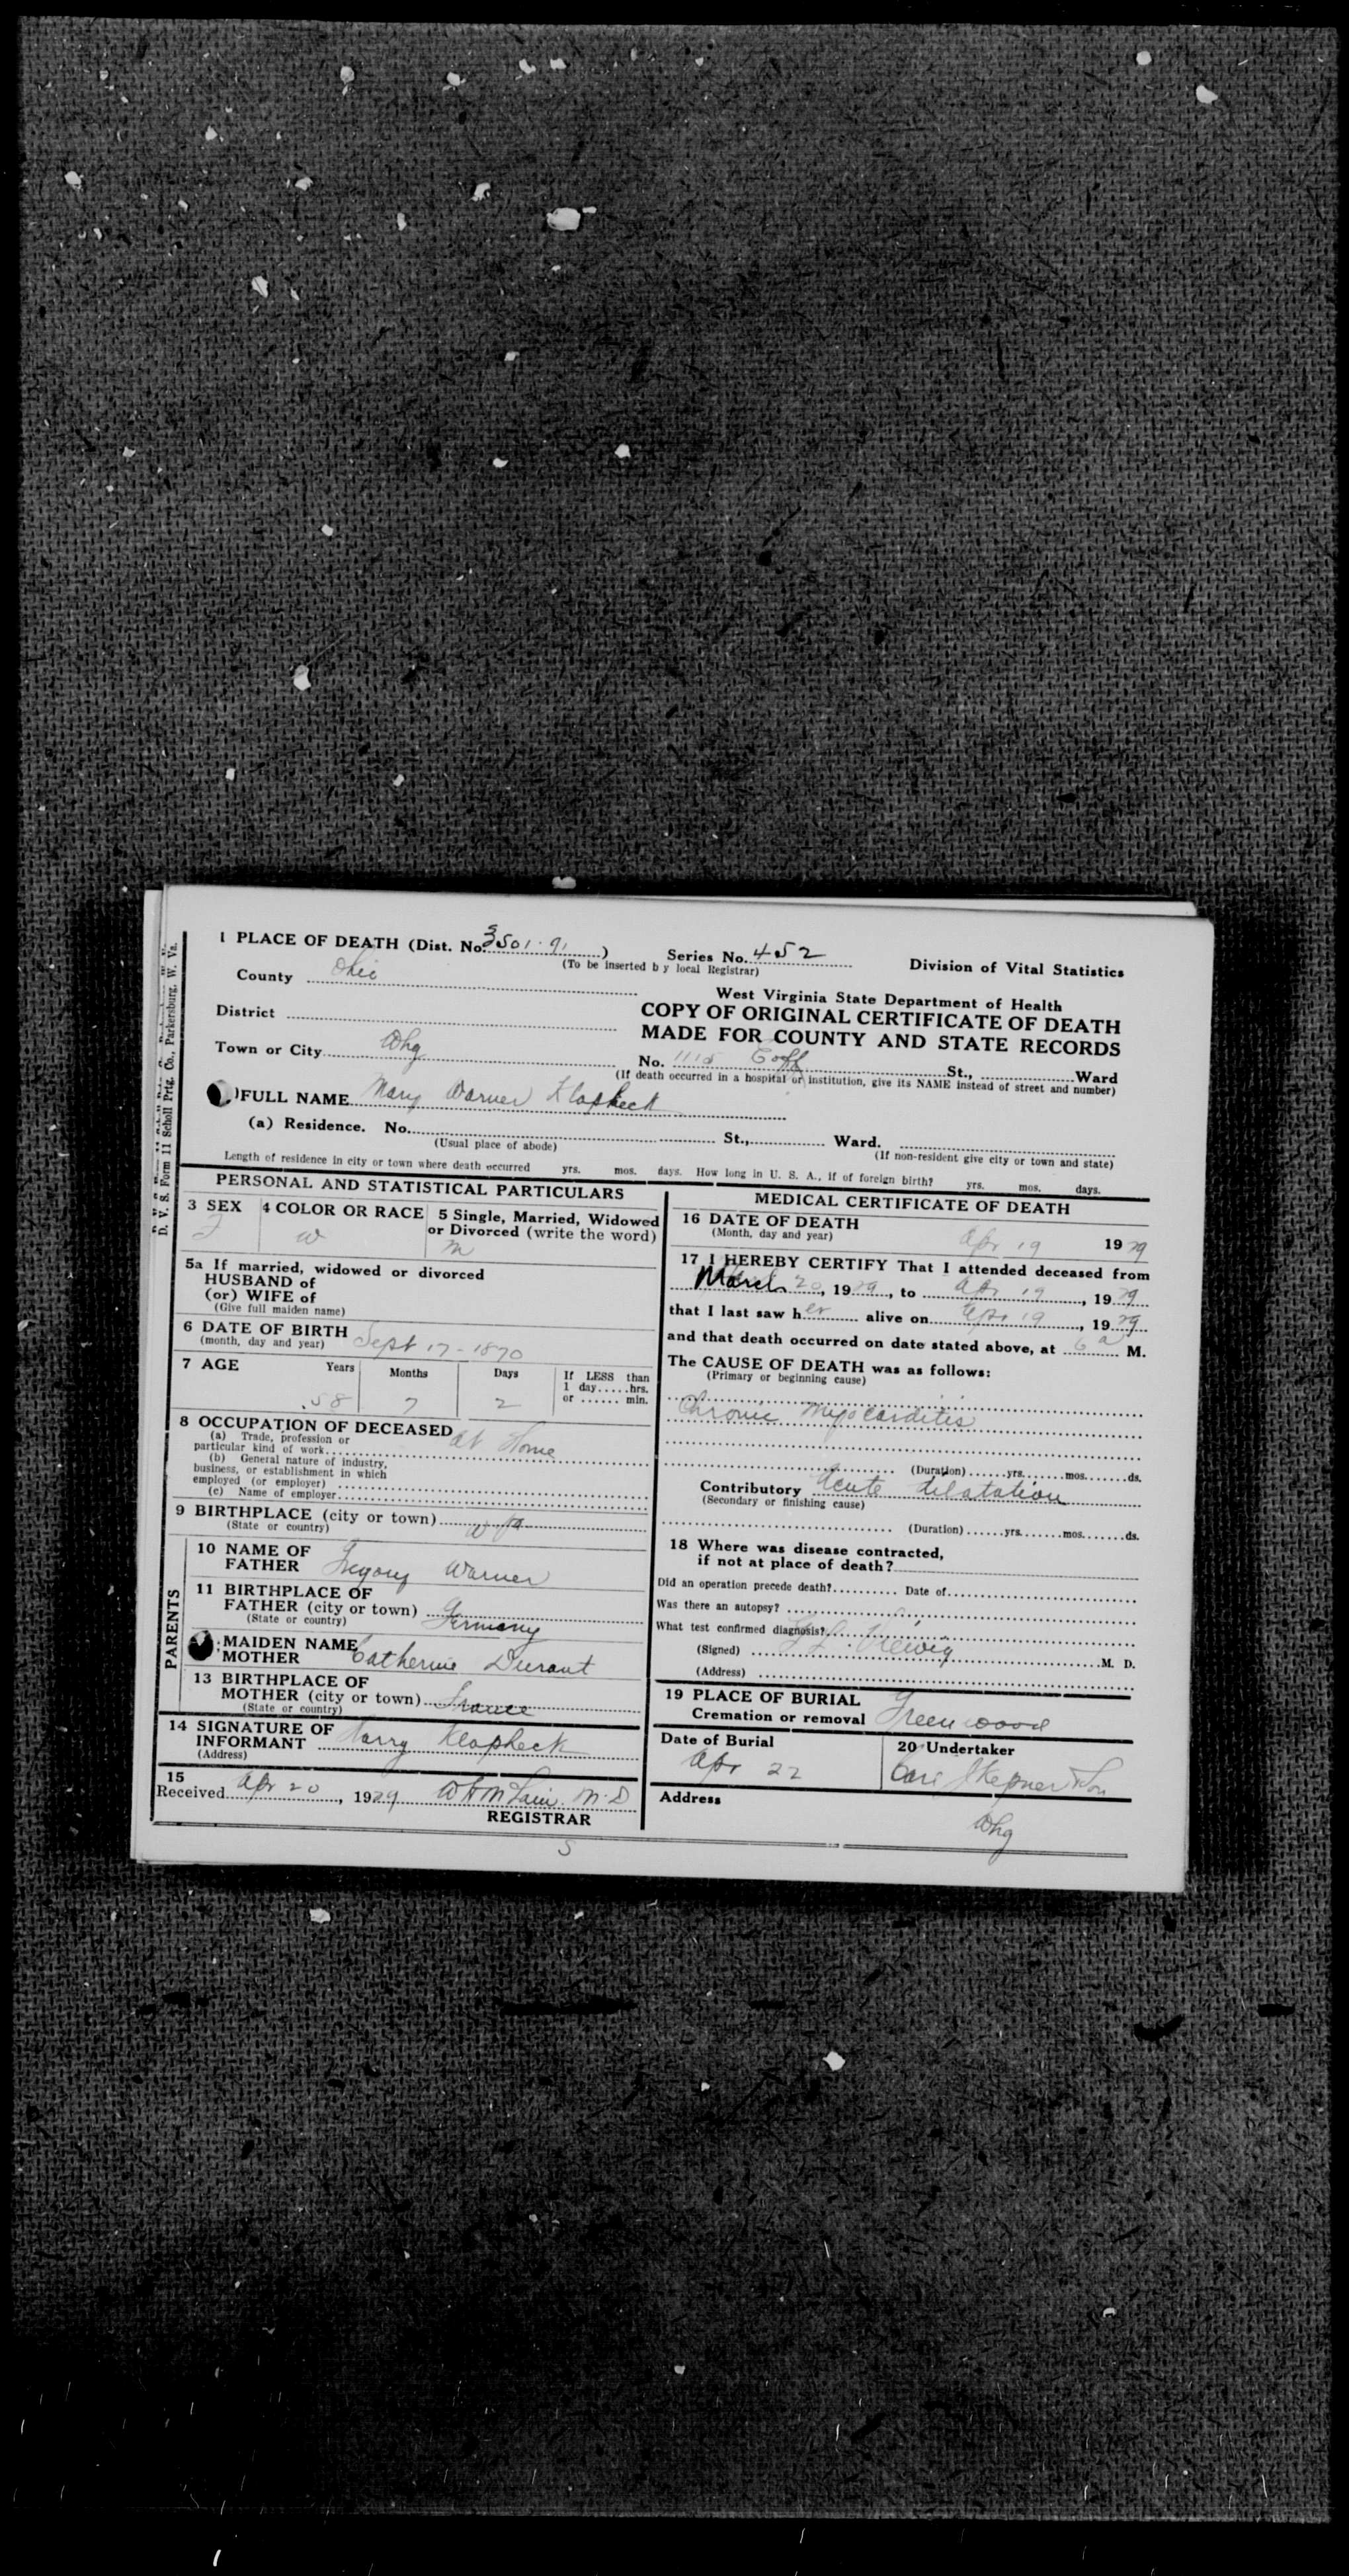 D. V. S. Form 11 Scholl Prtg. Co., Parkersburg, W. Va.
1 PLACE OF DEATH (Dist. No. 3501-91)
Series No. 452
(To be inserted b y local Registrar)
Division of Vital Statistics
County Ohio
West Virginia State Department of Health
District
COPY OF ORIGINAL CERTIFICATE OF DEATH
MADE FOR COUNTY AND STATE RECORDS
Town or City Whg
No. 1115 Eoff St., Ward
(If death occurred in a hospital or institution, give its NAME instead of street and number)
FULL NAME Mary Warner Klapheck
(a) Residence. No. St., Ward.
(Usual place of abode)
(If non-resident give city or town and state)
Length of residence in city or town where death occurred yrs. mos. days. How long in U. S. A., if of foreign birth? yrs. mos. days.
PERSONAL AND STATISTICAL PARTICULARS
3 SEX F
4 COLOR OR RACE W
5 Single, Married, Widowed
or Divorced (write the word)
M
5a If married, widowed or divorced
HUSBAND of
(or) WIFE of
(Give full maiden name)
6 DATE OF BIRTH
(month, day and year) Sept 17 - 1870
7 AGE Years Months Days If LESS than
1 day.....hrs.
or ...... min.
58 7 2
8 OCCUPATION OF DECEASED At Home
(a) Trade, profession or
particular kind of work
(b) General nature of industry,
business, or establishment in which
employed (or employer)
(c) Name of employer
9 BIRTHPLACE (city or town)
(State or country) W Va
PARENTS
10 NAME OF
FATHER Gregory Warner
11 BIRTHPLACE OF
FATHER (city or town) Germany
(State or country)
MAIDEN NAME
MOTHER Catherine Durant
13 BIRTHPLACE OF
MOTHER (city or town) France
(State or country)
14 SIGNATURE OF
INFORMANT Harry Klapheck
(Address)
15
Received Apr 20, 1929 M.D
REGISTRAR
5
MEDICAL CERTIFICATE OF DEATH
16 DATE OF DEATH
(Month, day and year) Apr 19 1929
17 I HEREBY CERTIFY That I attended deceased from
March 20, 1929, to Apr 19, 1929
that I last saw her alive on Apr 19, 1929
and that death occurred on date stated above, at 6 a M.
The CAUSE OF DEATH was as follows:
(Primary or beginning cause)
Chronic Myocarditis
(Duration)......yrs.......mos.......ds.
Contributory Acute dilatation
(Secondary or finishing cause)
(Duration)......yrs.......mos.......ds.
18 Where was disease contracted,
if not at place of death?
Did an operation precede death?.......... Date of
Was there an autopsy?
What test confirmed diagnosis?
(Signed) M. D.
(Address)
19 PLACE OF BURIAL
Cremation or removal Greenwood
Date of Burial
Apr 22
20 Undertaker
Son
Address
Whg